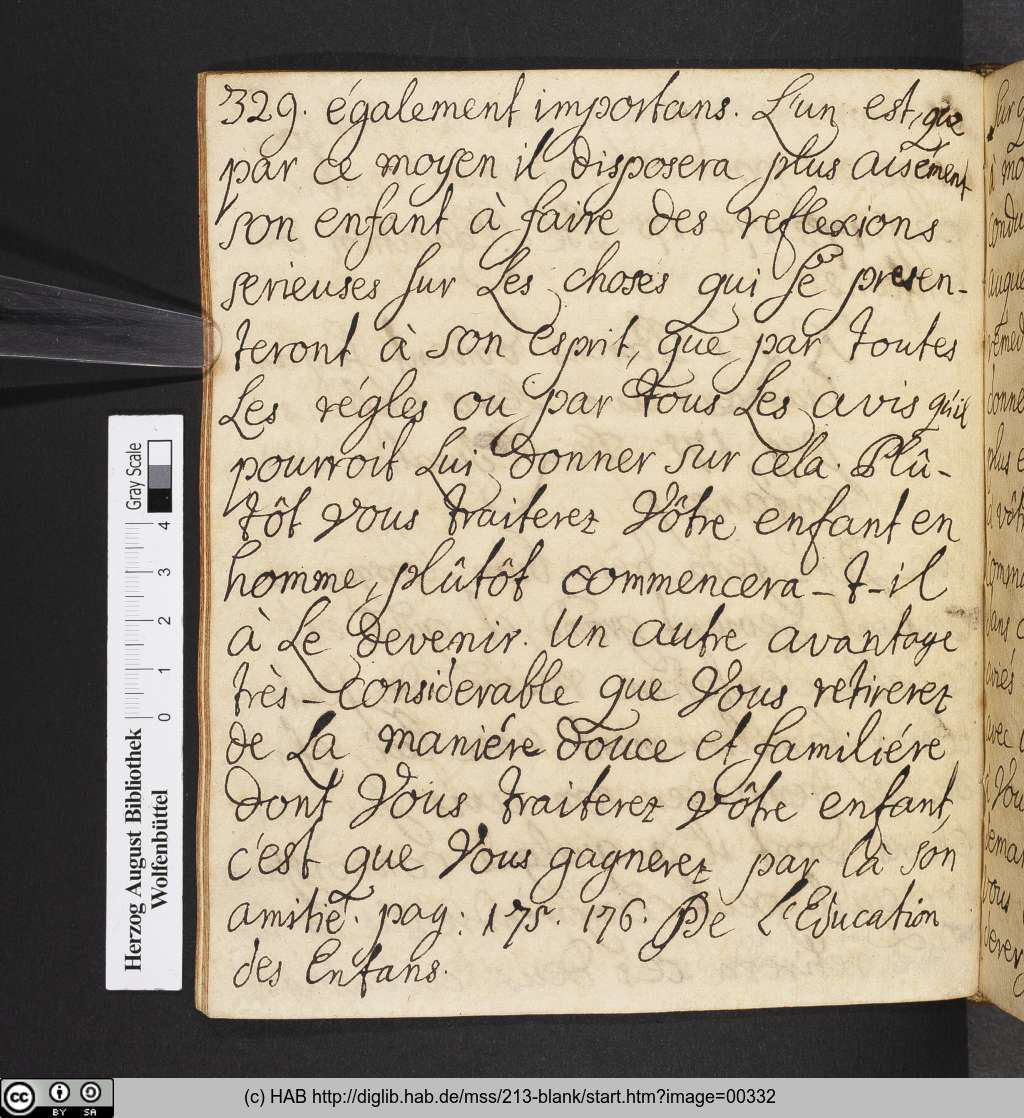 329. également importans. L'un est, que
par ce moyen il disposera plus aisément
son enfant à faire des reflexions
serieuses sur Les choses qui se presen-
teront à son esprit, que par toutes
Les régles ou par tous Les avis qu'il
pourroit Lui donner sur cela. Plû-
tôt Vous traiterez Vôtre enfant en
homme, plûtôt commencera-t-il
à Le devenir. Un autre avantage
très-considerable que Vous retirerez
de La maniére douce et familiére
dont Vous traiterez vôtre enfant,
c'est que Vous gagnerez par là son
amitié. pag: 175. 176. De L'Education
des Enfans.
Gray Scale
4
3
2
1
0
Herzog August Bibliothek
Wolfenbüttel
cc BY SA
(c) HAB http://diglib.hab.de/mss/213-blank/start.htm?image=00332